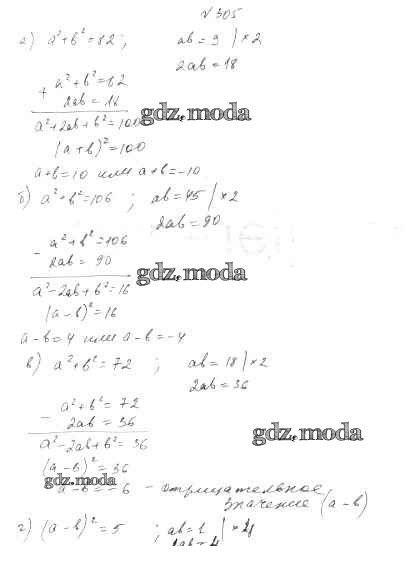 №305
а) a²+b²=82;   ab=9 | ×2
2ab=18
+ a²+b²=82
2ab=18
a²+2ab+b²=100
gdz.moda
(a+b)²=100
a+b=10 или a+b=-10
б) a²+b²=106 ; ab=45 | ×2
2ab=90
- a²+b²=106
2ab=90
gdz.moda
a²-2ab+b²=16
(a-b)²=16
a-b=4 или a-b=-4
в) a²+b²=72 ; ab=18 | ×2
2ab=36
- a²+b²=72
2ab=36
gdz.moda
a²-2ab+b²=36
(a-b)²=36
gdz.moda
a-b=-6 - отрицательное
значение (a-b)
г) (a-b)²=5 ; ab=1 | ×4
4